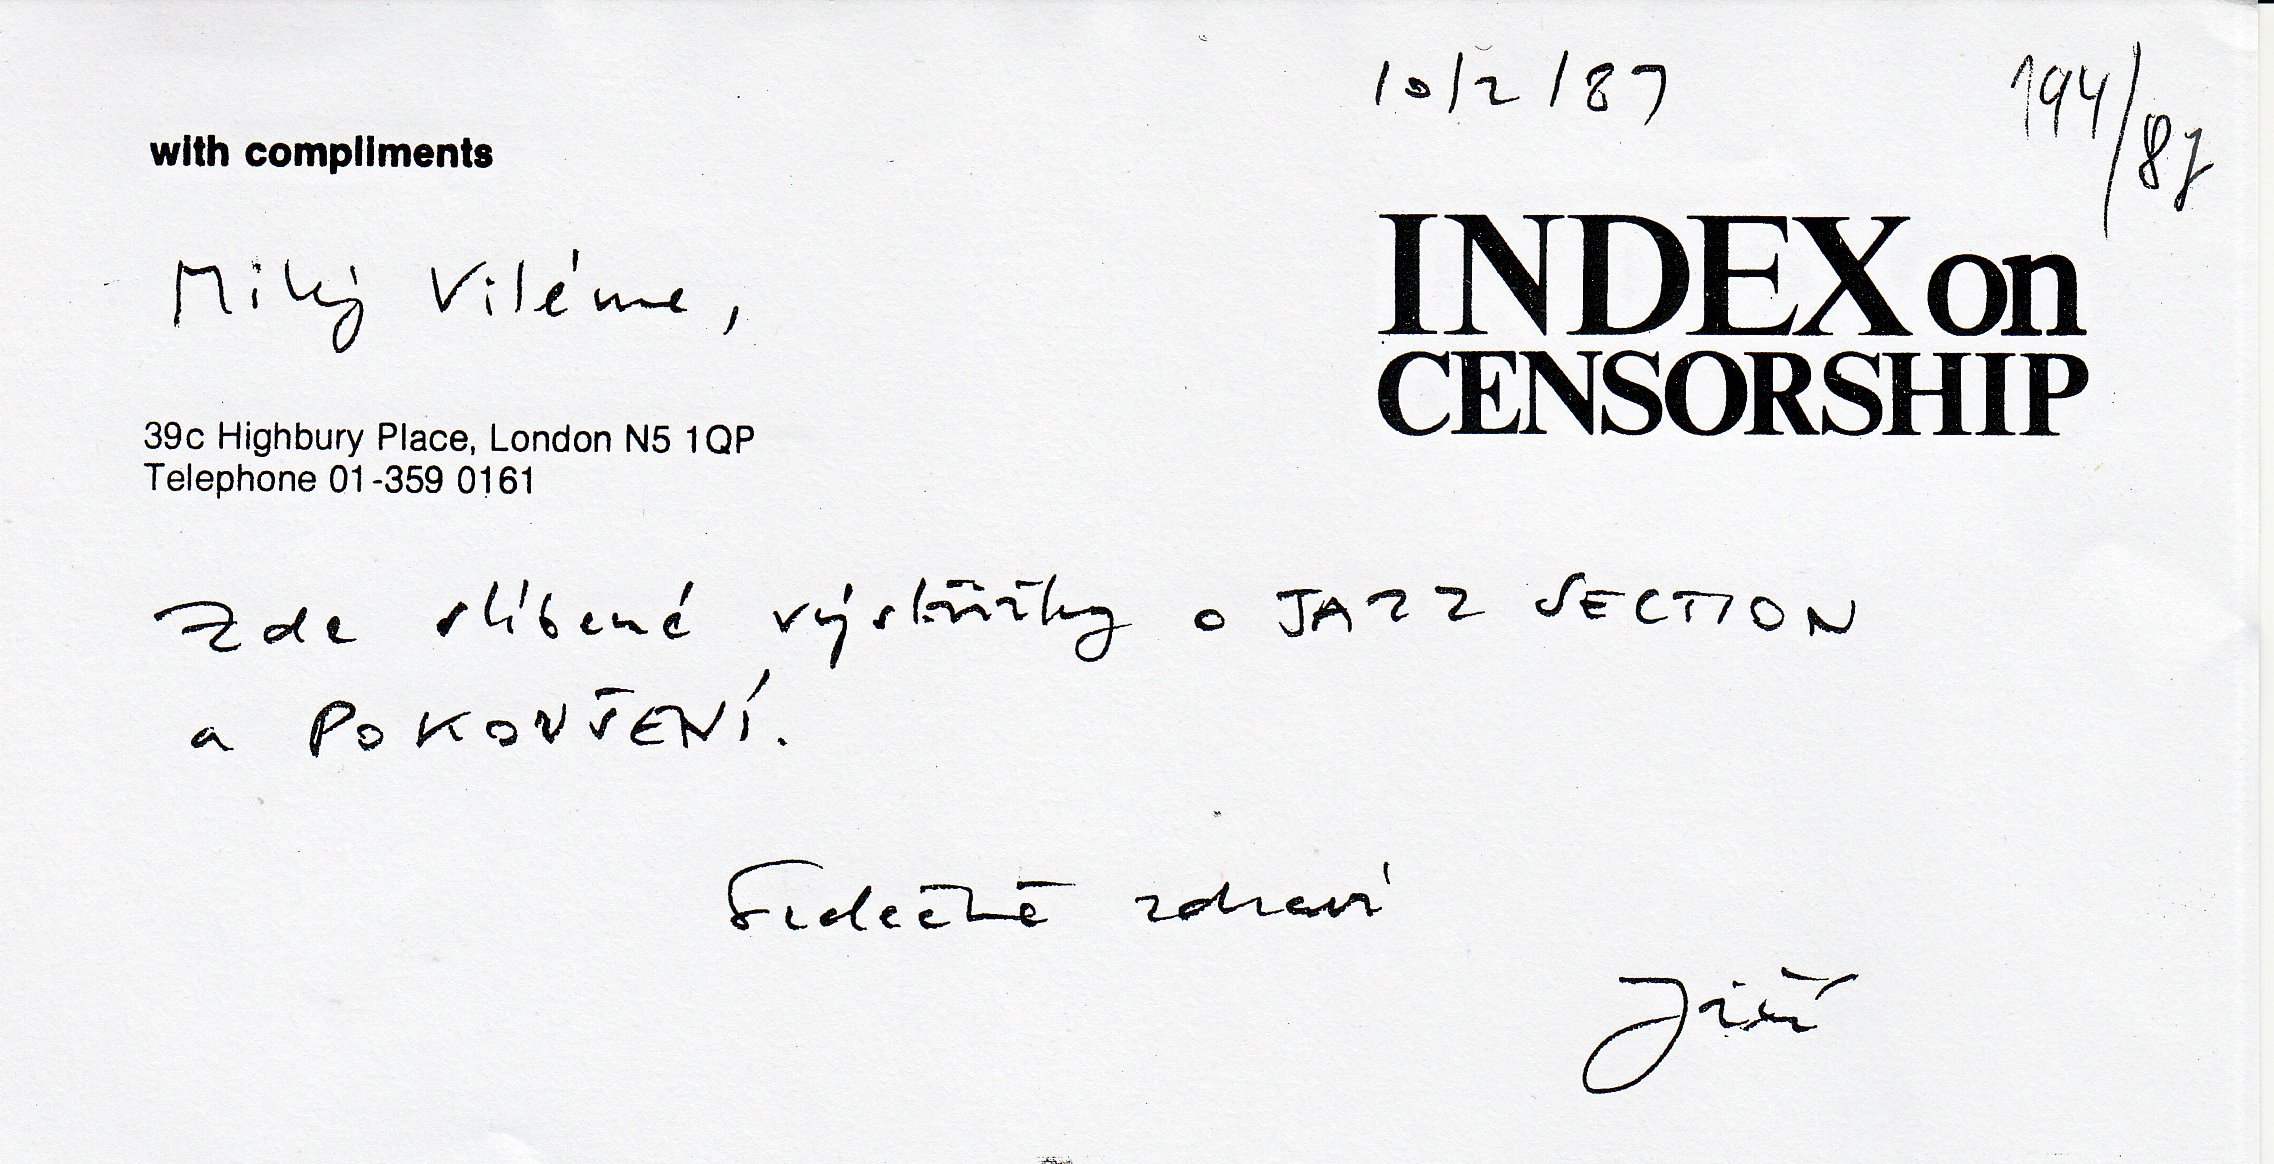 10/2/87
194/87
with compliments
INDEX on
CENSORSHIP
Milý Viléme,
39c Highbury Place, London N5 1QP
Telephone 01-359 0161
Zde slíbené výstřižky o JAZZ SECTION
a POKOUŠENÍ.
Srdečně zdraví
Jiří